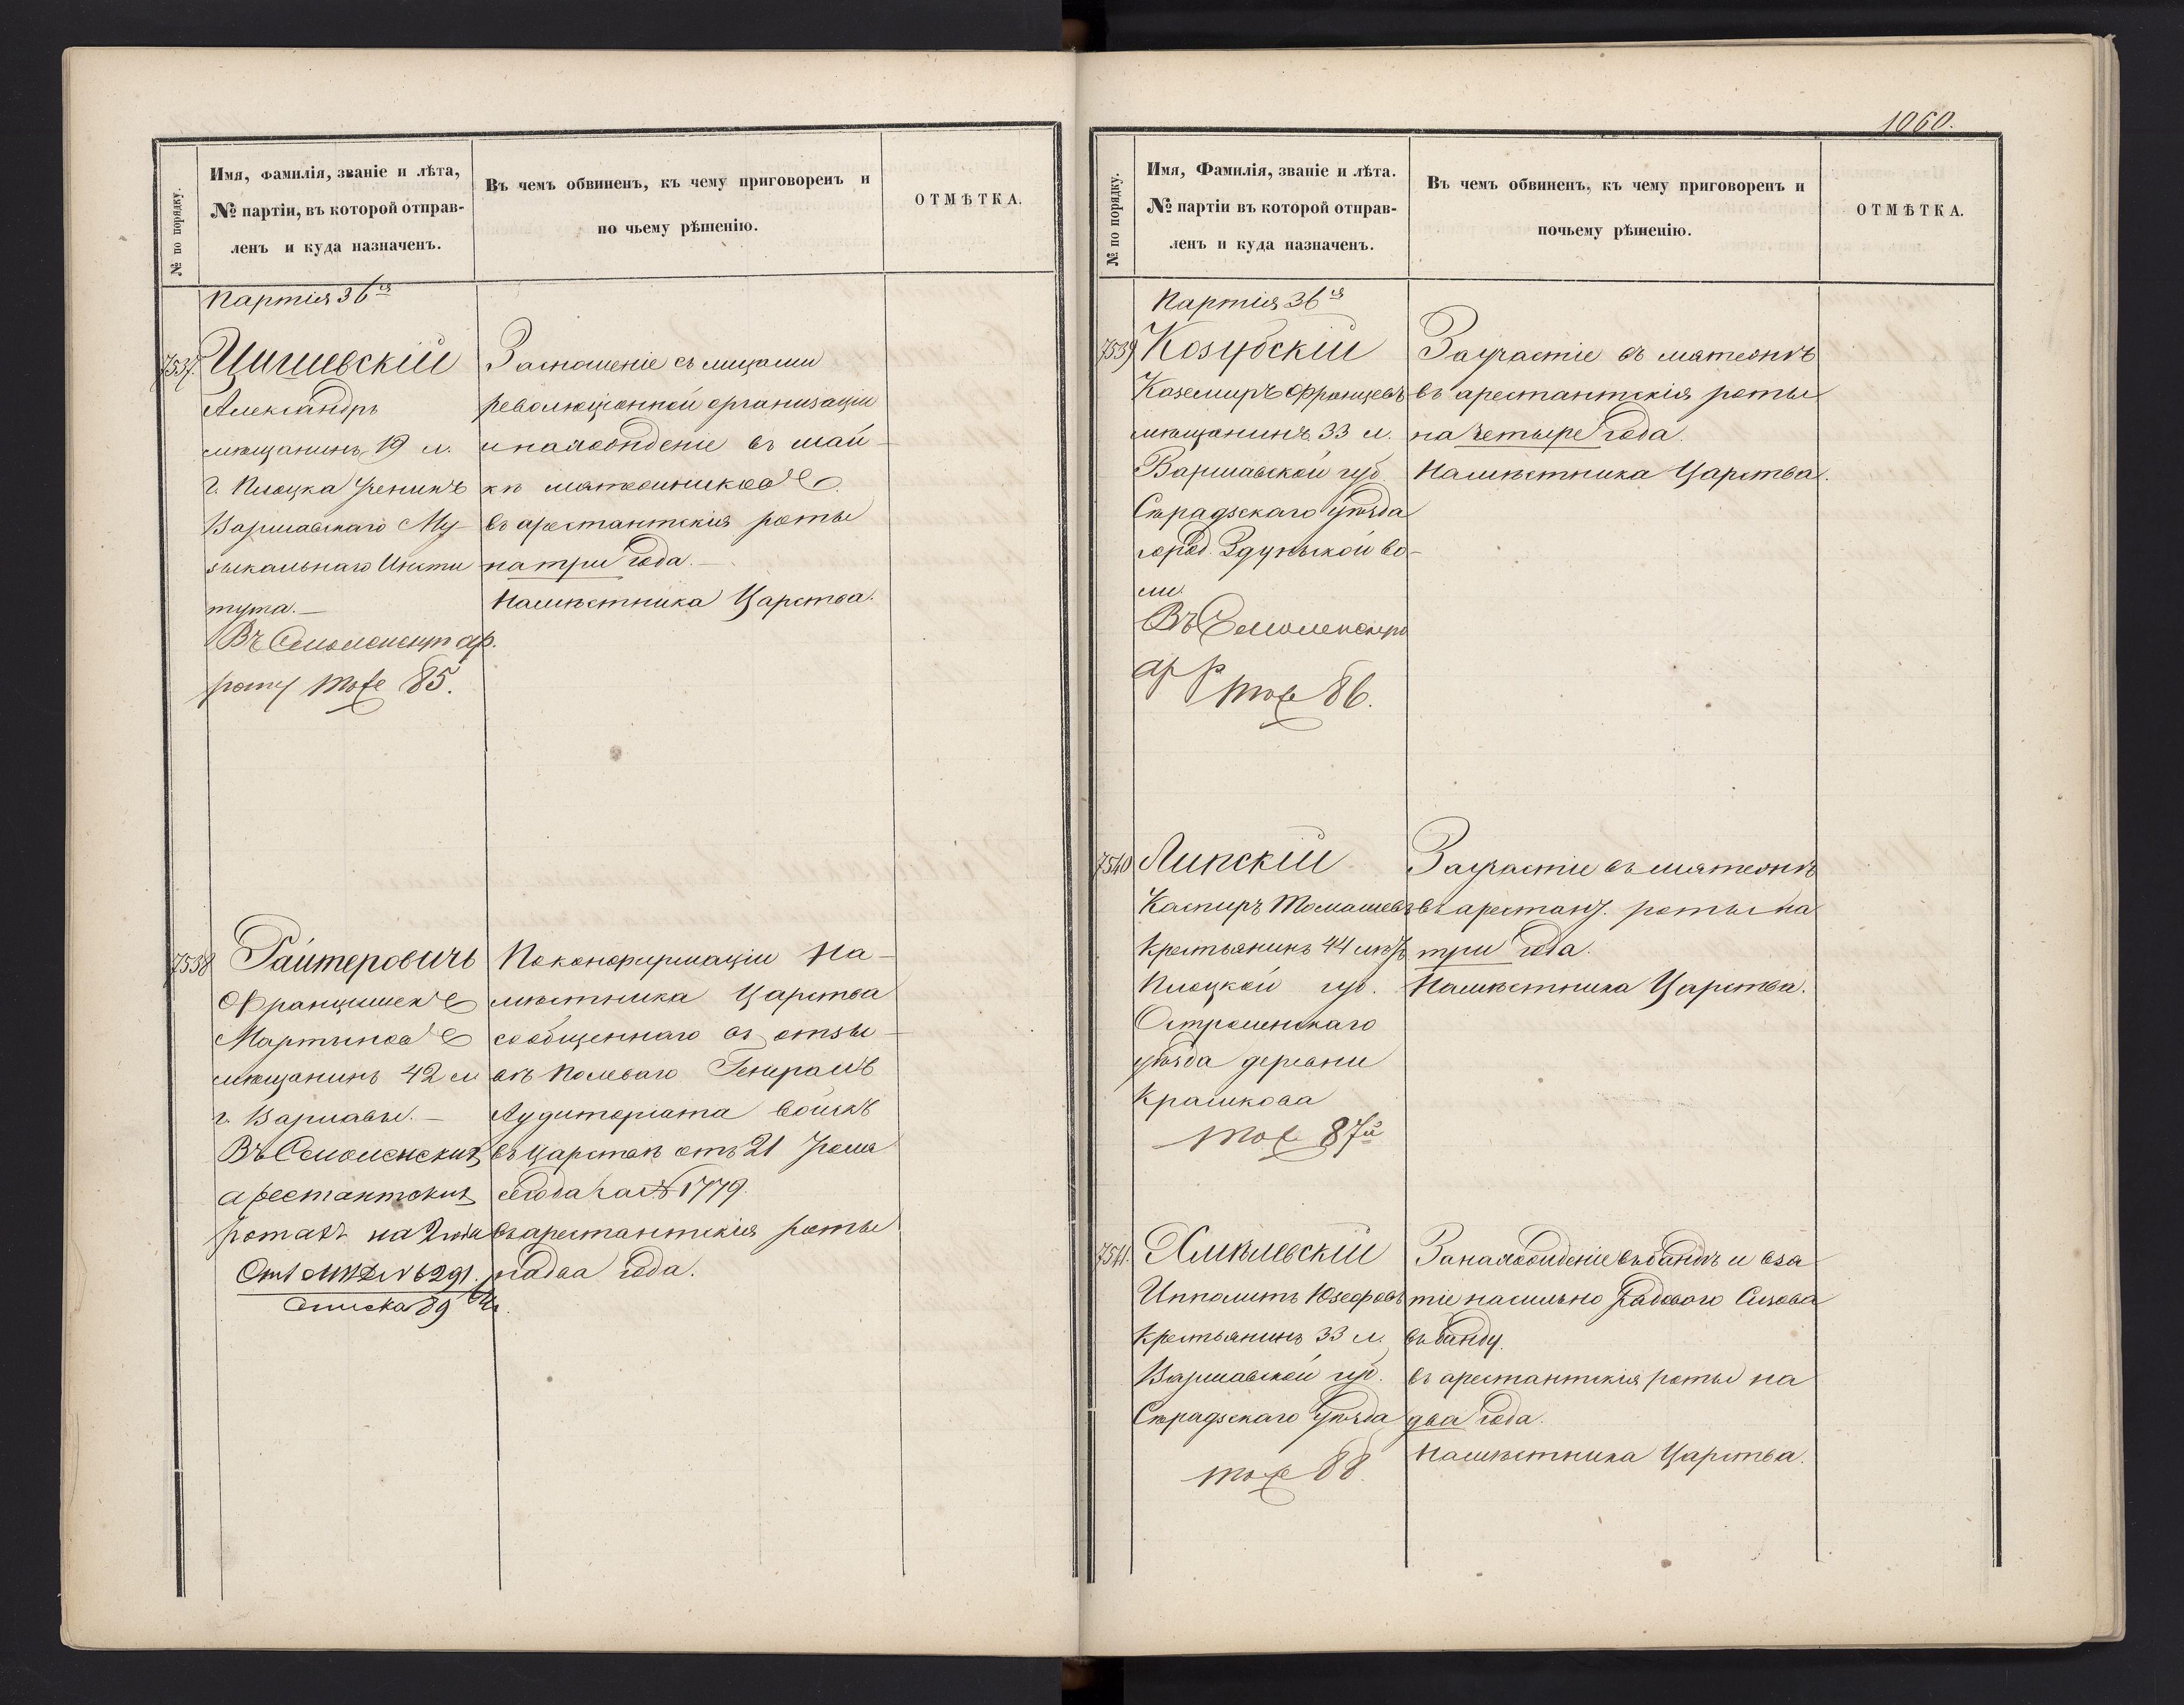 № по порядку.
Имя, фамилія, званіе и лѣта,
№ партіи, въ которой отправ-
ленъ и куда назначенъ.
Въ чемъ обвиненъ, къ чему приговоренъ и
по чьему рѣшенію.
ОТМѢТКА.
Партія 36я
7537.
Цигиевскій
Александръ
мѣщанинъ, 19 л.
г. Плоцка ученикъ
Варшавскаго Му-
зыкальнаго Инсти
тута.—
Въ Смоленск ар.
роту тоже 85.
За сношеніе съ лицами
революціонной организаціи
и нахожденіе въ шай-
кѣ мятежниковъ
въ арестантскія роты
на три года.—
Намѣстника Царства.
7538
Райтеровичъ
Францишекъ
Мартиновъ
мѣщанинъ 42 л
г. Варшавы.—
Въ Смоленскихъ
арестантскихъ
ротахъ на 2 года
От МВД N 6291.
списка 89
По конфирмаціи На-
мѣстника Царства
сообщеннаго въ отзы-
вѣ Полеваго Генералъ
Аудиторіата войскъ
въ Царствѣ отъ 21 Іюля
сего года за № 1779.
въ арестантскія роты
на два года.
1060.
№ по порядку.
Имя, Фамилія, званіе и лѣта.
№ партіи въ которой отправ-
ленъ и куда назначенъ.
Въ чемъ обвиненъ, къ чему приговоренъ и
почьему рѣшенію.
ОТМѢТКА.
Партія 36я
7539
Козубскій
Каземиръ Францевъ
мѣщанинъ 33 л.
Варшавской губ.
Сѣрадзскаго уѣзда
город. Здуньской Во-
ли.
Въ Смоленскую
ар р
тоже 86.
За участіе въ мятежѣ
въ арестантскія роты
на четыре года.
Намѣстника Царства.
7540
Липскій
Каспиръ Томашевъ
Крестьянинъ 44 лѣтъ
Плоцкой губ.
Остроленскаго
уѣзда деревни
Крашкова
тоже 87й
За участіе въ мятежѣ
въ арестант. роты на
три года.
Намѣстника Царства.
7541.
Хмѣлевскій
Ипполитъ Юзефовъ
Крестьянинъ 33 л.
Варшавской губ.
Сѣрадзскаго уѣзда
тоже 88.
За нахожденіе въ бандѣ и взя
тіе насильно рядоваго Сизова
въ банду.
въ арестантскія роты на
два года.
Намѣстника Царства.